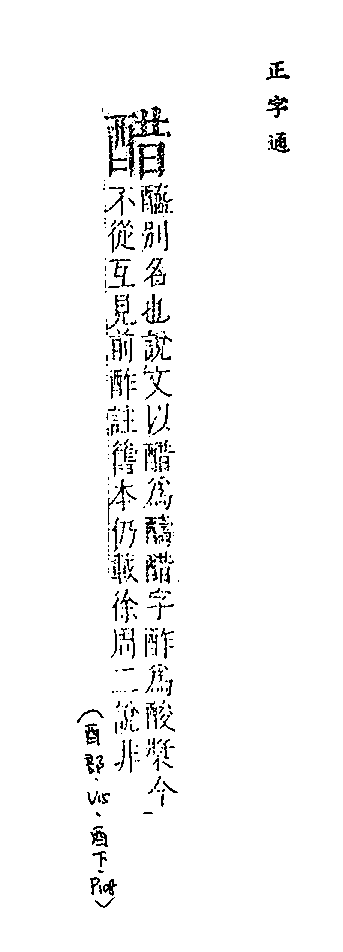 正字通
醋醯別名也說文以醋為醻醋字酢為酸漿今
不從互見前酢註舊本仍載徐周二說非
(酉部.V15.酉下.P108)